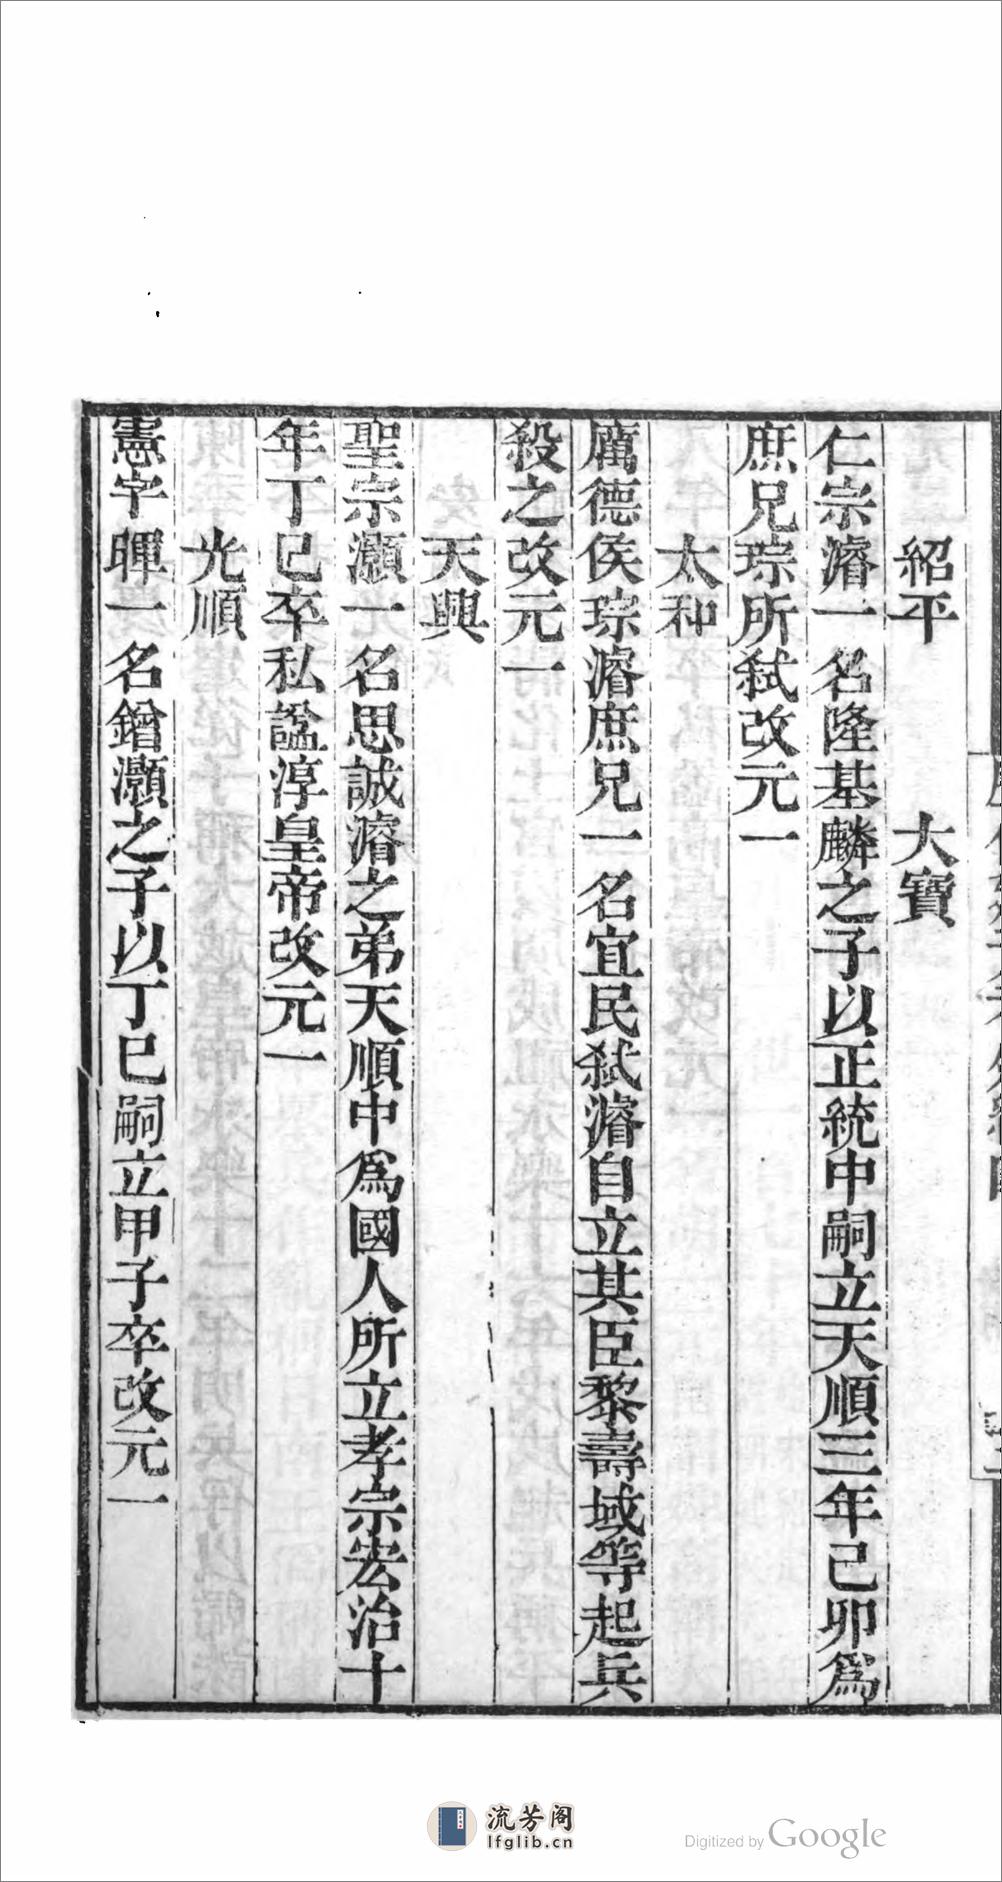 紹平　大寶
仁宗濬一名隆基麟之子以正統中嗣立天順三年己卯為
庶兄琮所弑改元一
太和
厲德侯琮濬庶兄一名宜民弑濬自立其臣黎壽域等起兵
殺之改元一
天興
聖宗灝一名思誠濬之弟天順中為國人所立孝宗宏治十
年丁巳卒私諡淳皇帝改元一
光順
憲宗暉一名鏳灝之子以丁巳嗣立甲子卒改元一
流芳阁
lfglib.cn
Digitized by Google